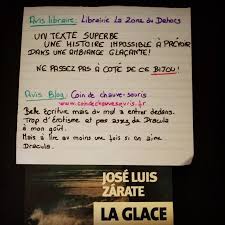 Avis libraire: Librairie La Zone du Dehors
UN TEXTE SUPERBE
UNE HISTOIRE IMPOSSIBLE À PRÉVOIR
DANS UNE AMBIANCE GLAÇANTE!
NE PASSEZ PAS À COTÉ DE CE BIJOU!
Avis Blog: Coin de chauve-souris
www.coindechauvesouris.fr
Belle écriture mais du mal a entrer dedans.
Trop d'érotisme et pas assez de Dracula
à mon goût.
Mais à lire au moins une fois si on aime
Dracula.
JOSÉ LUIS
ZÁRATE
LA GLACE